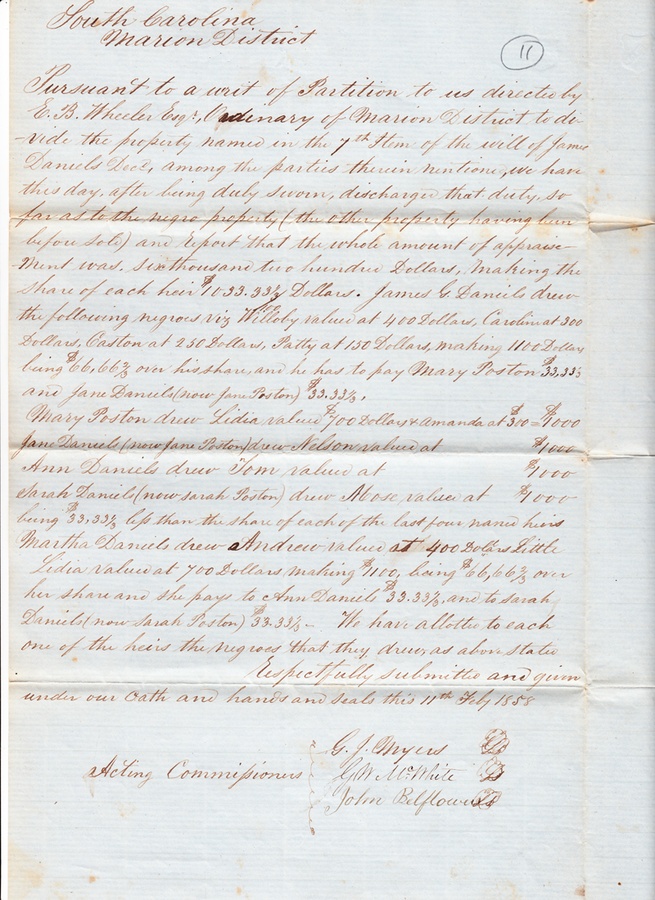 South Carolina
Marion District
11
Pursuant to a writ of Partition to us directed by
E. B. Wheeler Esqr., Ordinary of Marion District to de-
-vide the property named in the 7th Item of the will of James
Daniels Decd, among the parties therein mentione, we have
this day, after being duly sworn, discharged that duty, so
far as to the negro property (the other property having been
before sold) and report that the whole amount of appraise-
ment was. six thousand two hundred Dollars, making the
share of each heir $1033.33⅓ Dollars. James G. Daniels drew
the following negroes viz Willoby valued at 400 Dollars, Caroline at 300
Dollars, Easton at 250 Dollars, Patty at 150 Dollars, making 1100 Dollars
being $66,66⅔ over his share, and he has to pay Mary Poston $33,33⅓
and Jane Daniels (now Jane Poston) $33.33⅓,
Mary Poston drew Lidia valued $700 Dollars & amanda at $300 = $1000
Jane Daniels (now Jane Poston) drew Nelson valued at $1000
Ann Daniels drew Tom valued at $1000
Sarah Daniels (now Sarah Poston) drew Moose valued at $1000
being $33,33⅓ less than the share of each of the last four named heirs
Martha Daniels drew Andrew valued at 400 Dollars Little
Lidia valued at 700 Dollars, making $1100, being $66,66⅔ over
her share and she pays to Ann Daniels $33.33⅓, and to Sarah
Daniels (now Sarah Poston) $33.33⅓ – We have allotted to each
one of the heirs the negroes that they drew, as above stated
Respectfully submitted and given
under our oath and hands and seals this 11th Feby 1858
G. J. Myers
Acting Commissioners G W McWhite
John Belflowers